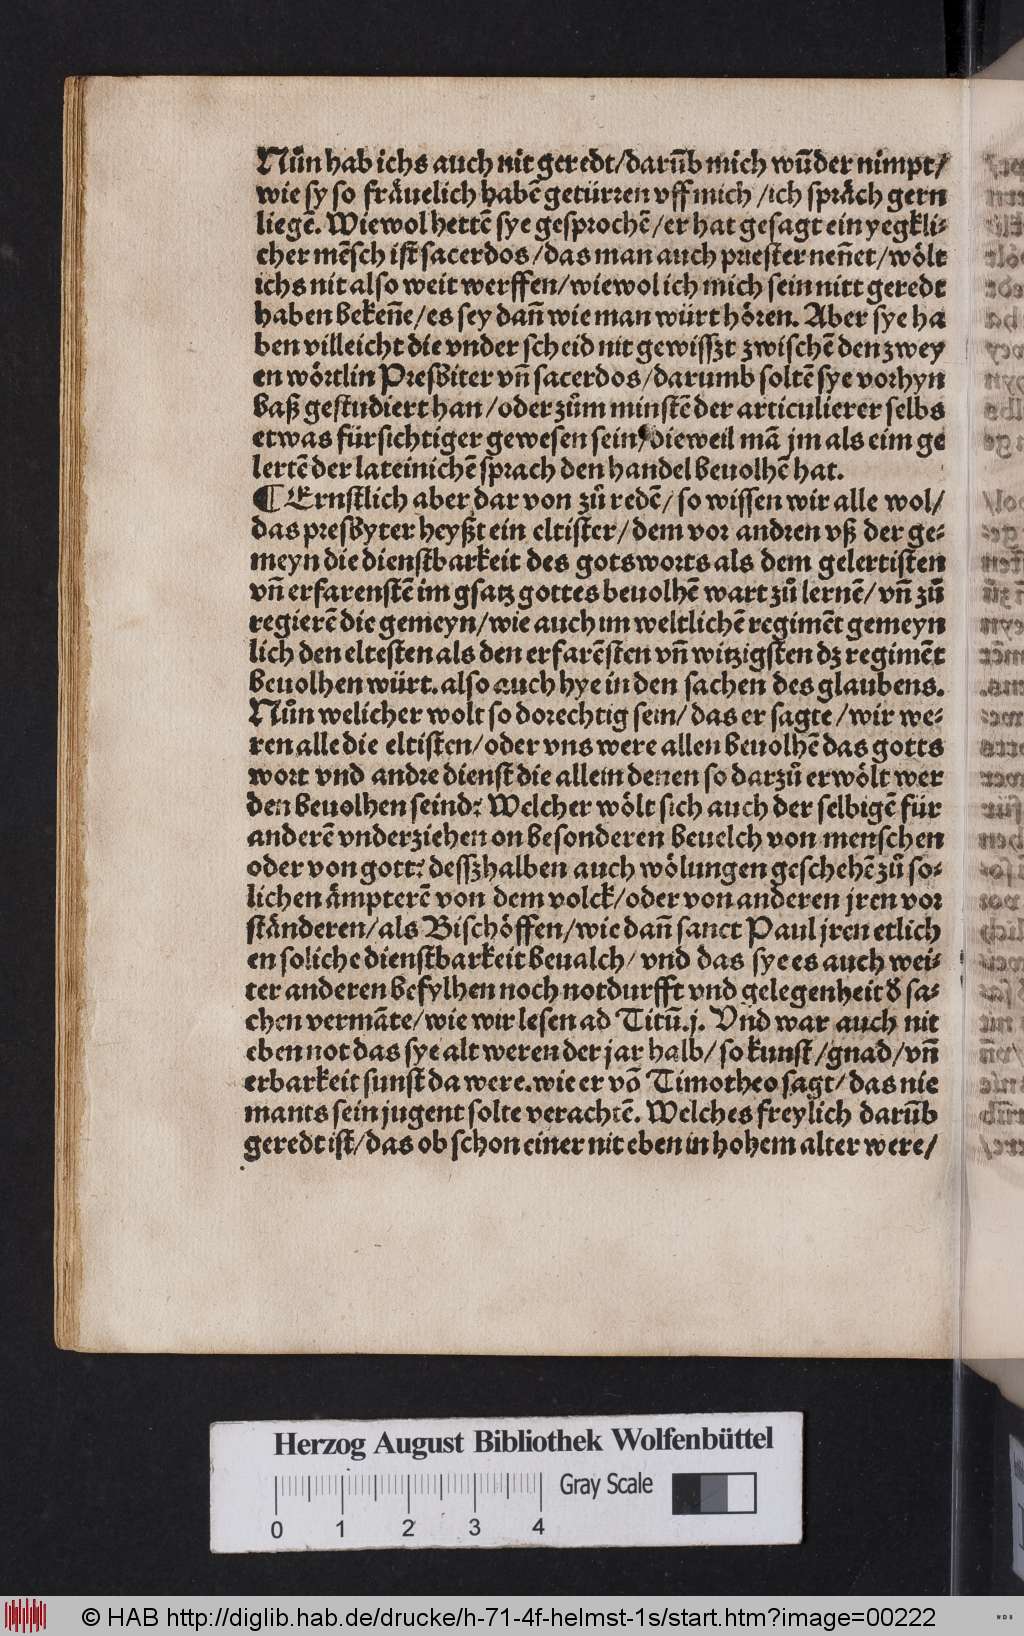 Nůn hab ichs auch nit geredt/darũb mich wũder nimpt/
wie sy so frāuelich habē getürren vff mich /ich sprāch gern
liegē. Wiewol hettē sye gesprochē/er hat gesagt ein yegkli⸗
cher mēsch ist sacerdos/das man auch priester nen̄et/wölt
ichs nit also weit werffen/wiewol ich mich sein nitt geredt
haben beken̄e/es sey dan̄ wie man würt hören. Aber sye ha
ben villeicht die vnder scheid nit gewisszt zwischē den zwey
en wörtlin Presbiter vn̄ sacerdos/darumb soltē sye vorhyn
baß gestudiert han/oder zům minstē der articulierer selbs
etwas fürsichtiger gewesen sein/dieweil mā jm als eim ge
lertē der lateinichē sprach den handel beuolhē hat.
¶ Ernstlich aber dar von zů redē/so wissen wir alle wol/
das presbyter heyßt ein eltister/dem vor andren vß der ge⸗
meyn die dienstbarkeit des gotsworts als dem gelertisten
vn̄ erfarenstē im gsatz gottes beuolhē wart zů lernē/vn̄ zů
regierē die gemeyn/wie auch im weltlichē regimēt gemeyn
lich den eltesten als den erfarēsten vn̄ witzigsten dz regimēt
beuolhen würt. also auch hye in den sachen des glaubens.
Nůn welicher wolt so dorechtig sein/das er sagte/wir we⸗
ren alle die eltisten/oder vns were allen beuolhē das gotts
wort vnd andre dienst die allein denen so darzů erwölt wer
den beuolhen seind? Welcher wölt sich auch der selbigē für
anderē vnderziehen on besonderen beuelch von menschen
oder von gott? desszhalben auch wölungen geschehē zů so⸗
lichen ämpterē von dem volck/oder von anderen jren vor
ständeren/als Bischöffen/wie dan̄ sanct Paul jren etlich
en soliche dienstbarkeit beualch/vnd das sye es auch wei⸗
ter anderen befylhen noch notdurfft vnd gelegenheit ď sa⸗
chen vermāte/wie wir lesen ad Titũ.j. Vnd war auch nit
eben not das sye alt weren der jar halb/so kunst/gnad/vn̄
erbarkeit sunst da were. wie er vō Timotheo sagt/das nie
mants sein jugent solte verachtē. Welches freylich darũb
geredt ist/das ob schon einer nit eben in hohem alter were/
Herzog August Bibliothek Wolfenbüttel
Gray Scale
0 1 2 3 4
© HAB http://diglib.hab.de/drucke/h-71-4f-helmst-1s/start.htm?image=00222